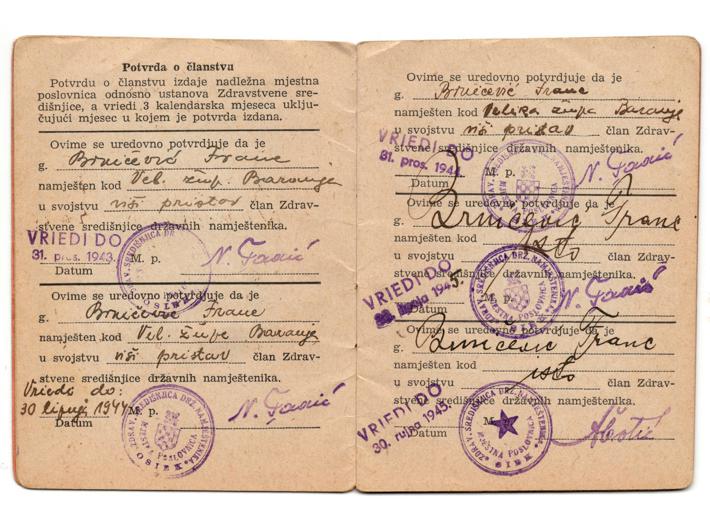 Potvrda o članstvu
Potvrdu o članstvu izdaje nadležna mjestna
poslovnica odnosno ustanova Zdravstvene sre-
dišnjice, a vriedi 3 kalendarska mjeseca uklju-
čujući mjesec u kojem je potvrda izdana.
Ovime se uredovno potvrdjuje da je
g. Brničević Frane
namješten kod Vel. žup. Baranja
u svojstvu viši pristav član Zdrav-
stvene središnjice državnih namještenika.
VRIEDI DO
31. pros. 1943. M. p.
Datum
Ovime se uredovno potvrdjuje da je
g. Brničević Frane
namješten kod Vel. župe Baranja
u svojstvu viši pristav član Zdrav-
stvene središnjice državnih namještenika.
Vriedi do:
30 lipnja 1944 M. p.
Datum
ZDRAV. SREDIŠNJICA DRŽ. NAMJEŠTENIKA
MJESTNA POSLOVNICA
OSIEK
Ovime se uredovno potvrdjuje da je
g. Brničević Frane
namješten kod Velika župa Baranja
u svojstvu viši pristav član Zdrav-
stvene središnjice državnih namještenika.
VRIEDI DO
31. pros. 1944. M. p.
Datum
Ovime se uredovno potvrdjuje da je
g. Brničević Franc
namješten kod isto
u svojstvu član Zdrav-
stvene središnjice državnih namještenika.
VRIEDI DO
1945. M. p.
Datum
ZDRAV. SREDIŠNJICA DRŽ. NAMJEŠTENIKA
MJESTNA POSLOVNICA
Ovime se uredovno potvrdjuje da je
g. Brničević Franc
namješten kod
u svojstvu isto član Zdrav-
stvene središnjice državnih namještenika.
VRIEDI DO
30. rujna 1945.
Datum
ZDRAV. SREDIŠNJICA DRŽ. NAMJEŠTENIKA
MJESTNA POSLOVNICA
OSIEK